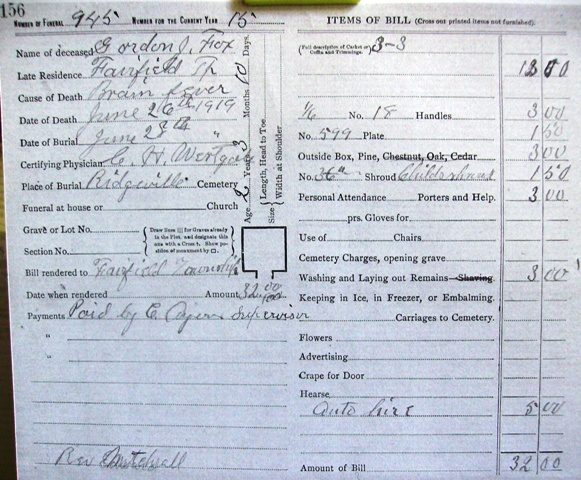 156
NUMBER OF FUNERAL 945 NUMBER FOR THE CURRENT YEAR 15
Name of deceased Gordon J. Fox
Late Residence Fairfield Tp
Cause of Death Brain fever
Date of Death June 26th 1919
Date of Burial June 28th "
Certifying Physician C. H.
Place of Burial Ridgeville Cemetery
Funeral at house or Church
Grave or Lot No. { Draw lines for Graves already in the Plot, and designate this one with a Cross †. Show position of monument by □. }
Section No.
Bill rendered to Fairfield Township
Date when rendered Amount, 32.00
Payments Paid by C. Supervisor
"
"
"
Rev
Age 2 Years 3 Months 10 Days.
Size { Length, Head to Toe
Width at Shoulder
ITEMS OF BILL (Cross out printed items not furnished).
(Full description of Casket or Coffin and Trimmings. 3-3
1/6 No. 18 Handles 3 00
No. 599 Plate 1 50
Outside Box, Pine, Chestnut, Oak, Cedar 3 00
No. Shroud Childs 1 50
Personal Attendance Porters and Help. 3 00
prs. Gloves for
Use of Chairs
Cemetery Charges, opening grave
Washing and Laying out Remains Shaving 3 00
Keeping in Ice, in Freezer, or Embalming.
Carriages to Cemetery.
Flowers
Advertising
Crape for Door
Hearse
Auto hire 5 00
Amount of Bill 32 00